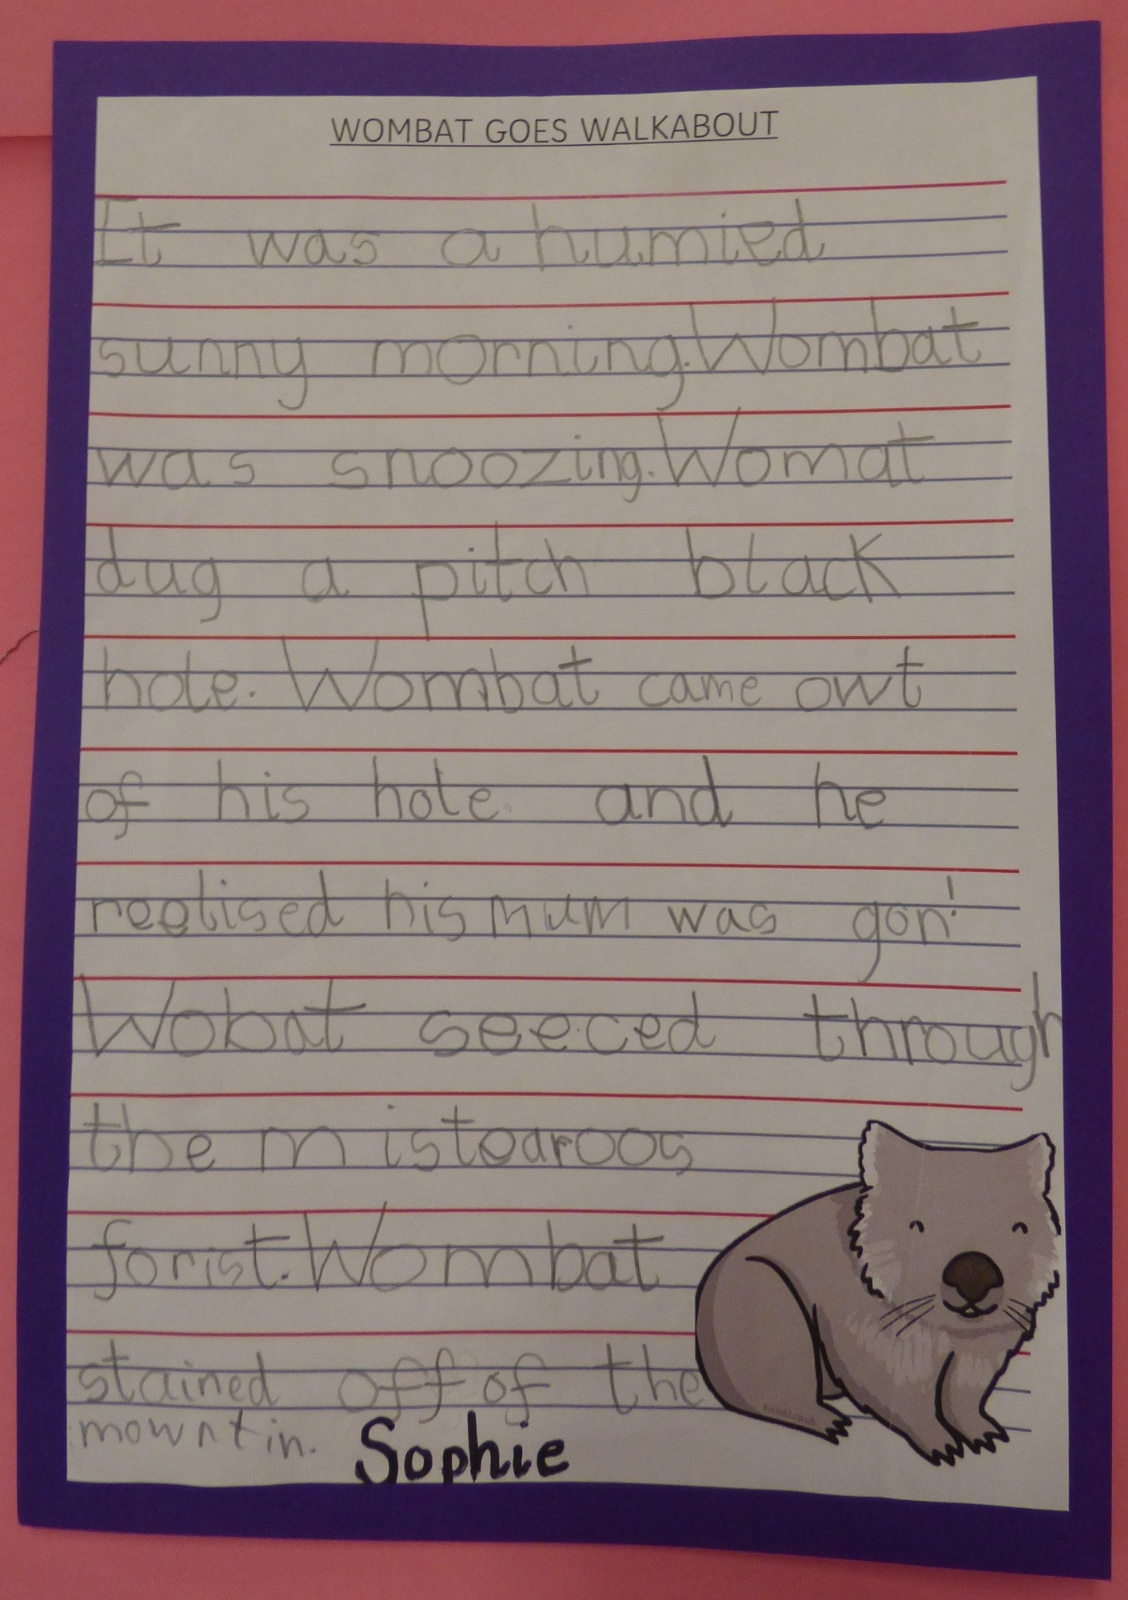 WOMBAT GOES WALKABOUT
It was a humied
sunny morning. Wombat
was snoozing. Womat
dug a pitch black
hole. Wombat came owt
of his hole and he
reelised his mum was gon!
Wobat seeced through
the mistearoos
forist. Wombat
stained off of the
mowntin.
Sophie